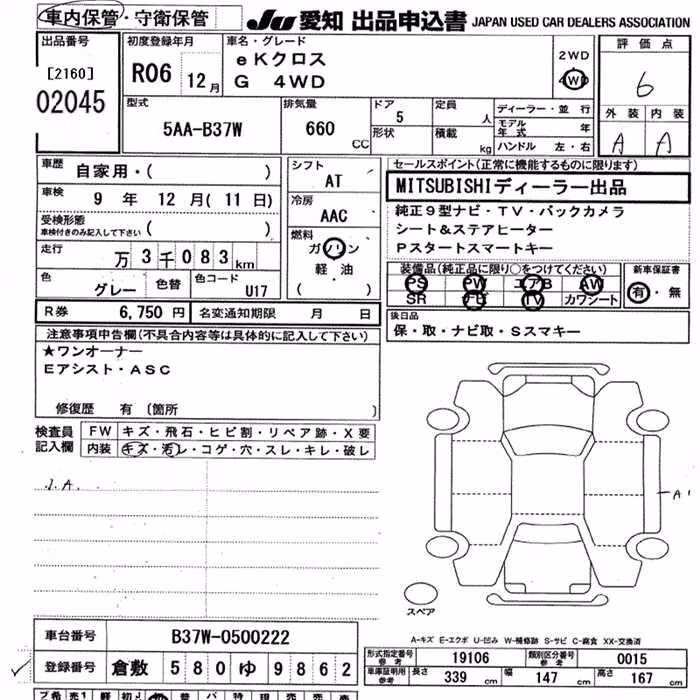 車内保管・守衛保管 JU 愛知 出品申込書 JAPAN USED CAR DEALERS ASSOCIATION
出品番号
[2160]
02045
初度登録年月
R06 12月
車名・グレード
eKクロス
G 4WD
2WD
4WD
評価点
6
外装 内装
A A
型式
5AA-B37W
排気量
660 CC
ドア
5
形状
定員 人
積載 kg
ディーラー・並行
モデル年式 年
ハンドル 左・右
車歴
自家用・( )
車検
9 年 12 月(11 日)
受検形態
車検付きのみ記入して下さい ( )
走行
万 3千083km
色
グレー
色替
色コード
U17
シフト
AT
冷房
AAC
燃料
ガソリン
軽・油
( )
セールスポイント(正常に機能するものに限ります)
MITSUBISHIディーラー出品
純正9型ナビ・TV・バックカメラ
シート&ステアヒーター
Pスタートスマートキー
装備品(純正品に限り○をつけてください)
PS PW エアB AW
SR ナビ TV カワシート
新車保証書
有・無
R券 6,750円 名変通知期限 月 日
後日品
保・取・ナビ取・Sスマキー
注意事項申告欄(不具合内容等は具体的に記入して下さい)
★ワンオーナー
Eアシスト・ASC
修復歴 有 〔箇所 〕
検査員記入欄
FW キズ・飛石・ヒビ割・リペア跡・X要
内装 キズ・汚レ・コゲ・穴・スレ・キレ・破レ
J.A.
A1
スペア
A-キズ E-エクボ U-凹み W-補修跡 S-サビ C-腐食 XX-交換済
車台番号 B37W-0500222
登録番号 倉敷 580 ゆ 9862
形式指定番号 参考 19106 類別区分番号 参考 0015
車庫証明用 参考 長さ 339 cm 幅 147 cm 高さ 167 cm